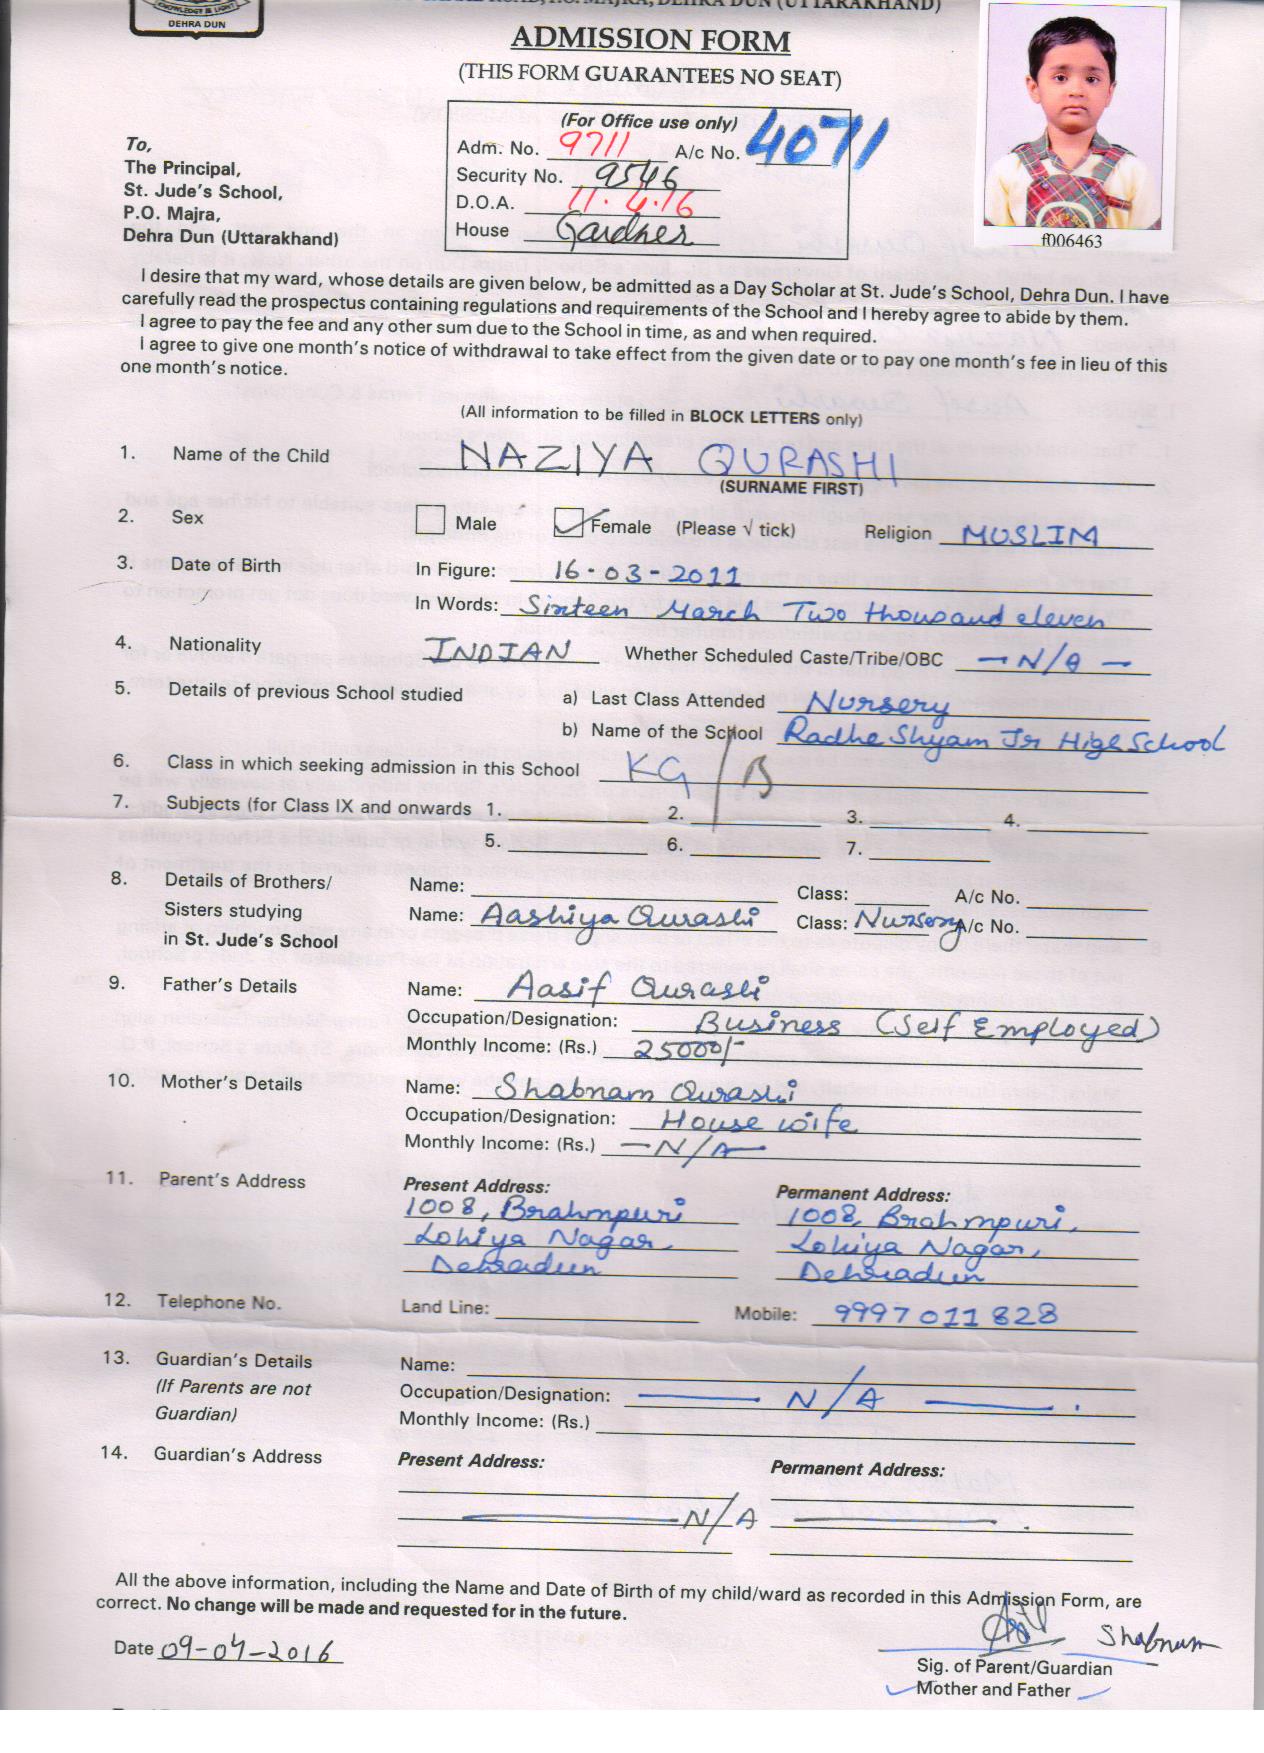 KNOWLEDGE & LIGHT
DEHRA DUN
ROAD, P.O. MAJRA, DEHRA DUN (UTTARAKHAND)
ADMISSION FORM
(THIS FORM GUARANTEES NO SEAT)
(For Office use only)
Adm. No. 9711 A/c No. 4071
Security No. 9546
D.O.A. 11.4.16
House Gardner
f006463
To,
The Principal,
St. Jude's School,
P.O. Majra,
Dehra Dun (Uttarakhand)
I desire that my ward, whose details are given below, be admitted as a Day Scholar at St. Jude's School, Dehra Dun. I have
carefully read the prospectus containing regulations and requirements of the School and I hereby agree to abide by them.
I agree to pay the fee and any other sum due to the School in time, as and when required.
I agree to give one month's notice of withdrawal to take effect from the given date or to pay one month's fee in lieu of this
one month's notice.
(All information to be filled in BLOCK LETTERS only)
1. Name of the Child NAZIYA QURASHI
(SURNAME FIRST)
2. Sex Male Female (Please √ tick) Religion MUSLIM
3. Date of Birth In Figure: 16-03-2011
In Words: Sixteen March Two thousand eleven
4. Nationality INDIAN Whether Scheduled Caste/Tribe/OBC —N/A—
5. Details of previous School studied a) Last Class Attended Nursery
b) Name of the School Radhe Shyam Jr High School
6. Class in which seeking admission in this School KG/B
7. Subjects (for Class IX and onwards 1. 2. 3. 4.
5. 6. 7.
8. Details of Brothers/ Name: Class: A/c No.
Sisters studying Name: Aashiya Qurashi Class: Nursery A/c No.
in St. Jude's School
9. Father's Details Name: Aasif Qurashi
Occupation/Designation: Business (Self Employed)
Monthly Income: (Rs.) 25000/-
10. Mother's Details Name: Shabnam Qurashi
Occupation/Designation: House wife
Monthly Income: (Rs.) —N/A—
11. Parent's Address Present Address: Permanent Address:
1008, Brahmpuri 1008, Brahmpuri,
Lohiya Nagar, Lohiya Nagar,
Dehradun Dehradun
12. Telephone No. Land Line: Mobile: 9997011828
13. Guardian's Details Name:
(If Parents are not Occupation/Designation: — N/A —.
Guardian) Monthly Income: (Rs.)
14. Guardian's Address Present Address: Permanent Address:
—N/A—.
All the above information, including the Name and Date of Birth of my child/ward as recorded in this Admission Form, are
correct. No change will be made and requested for in the future.
Date 09-04-2016
Shabnum
Sig. of Parent/Guardian
Mother and Father